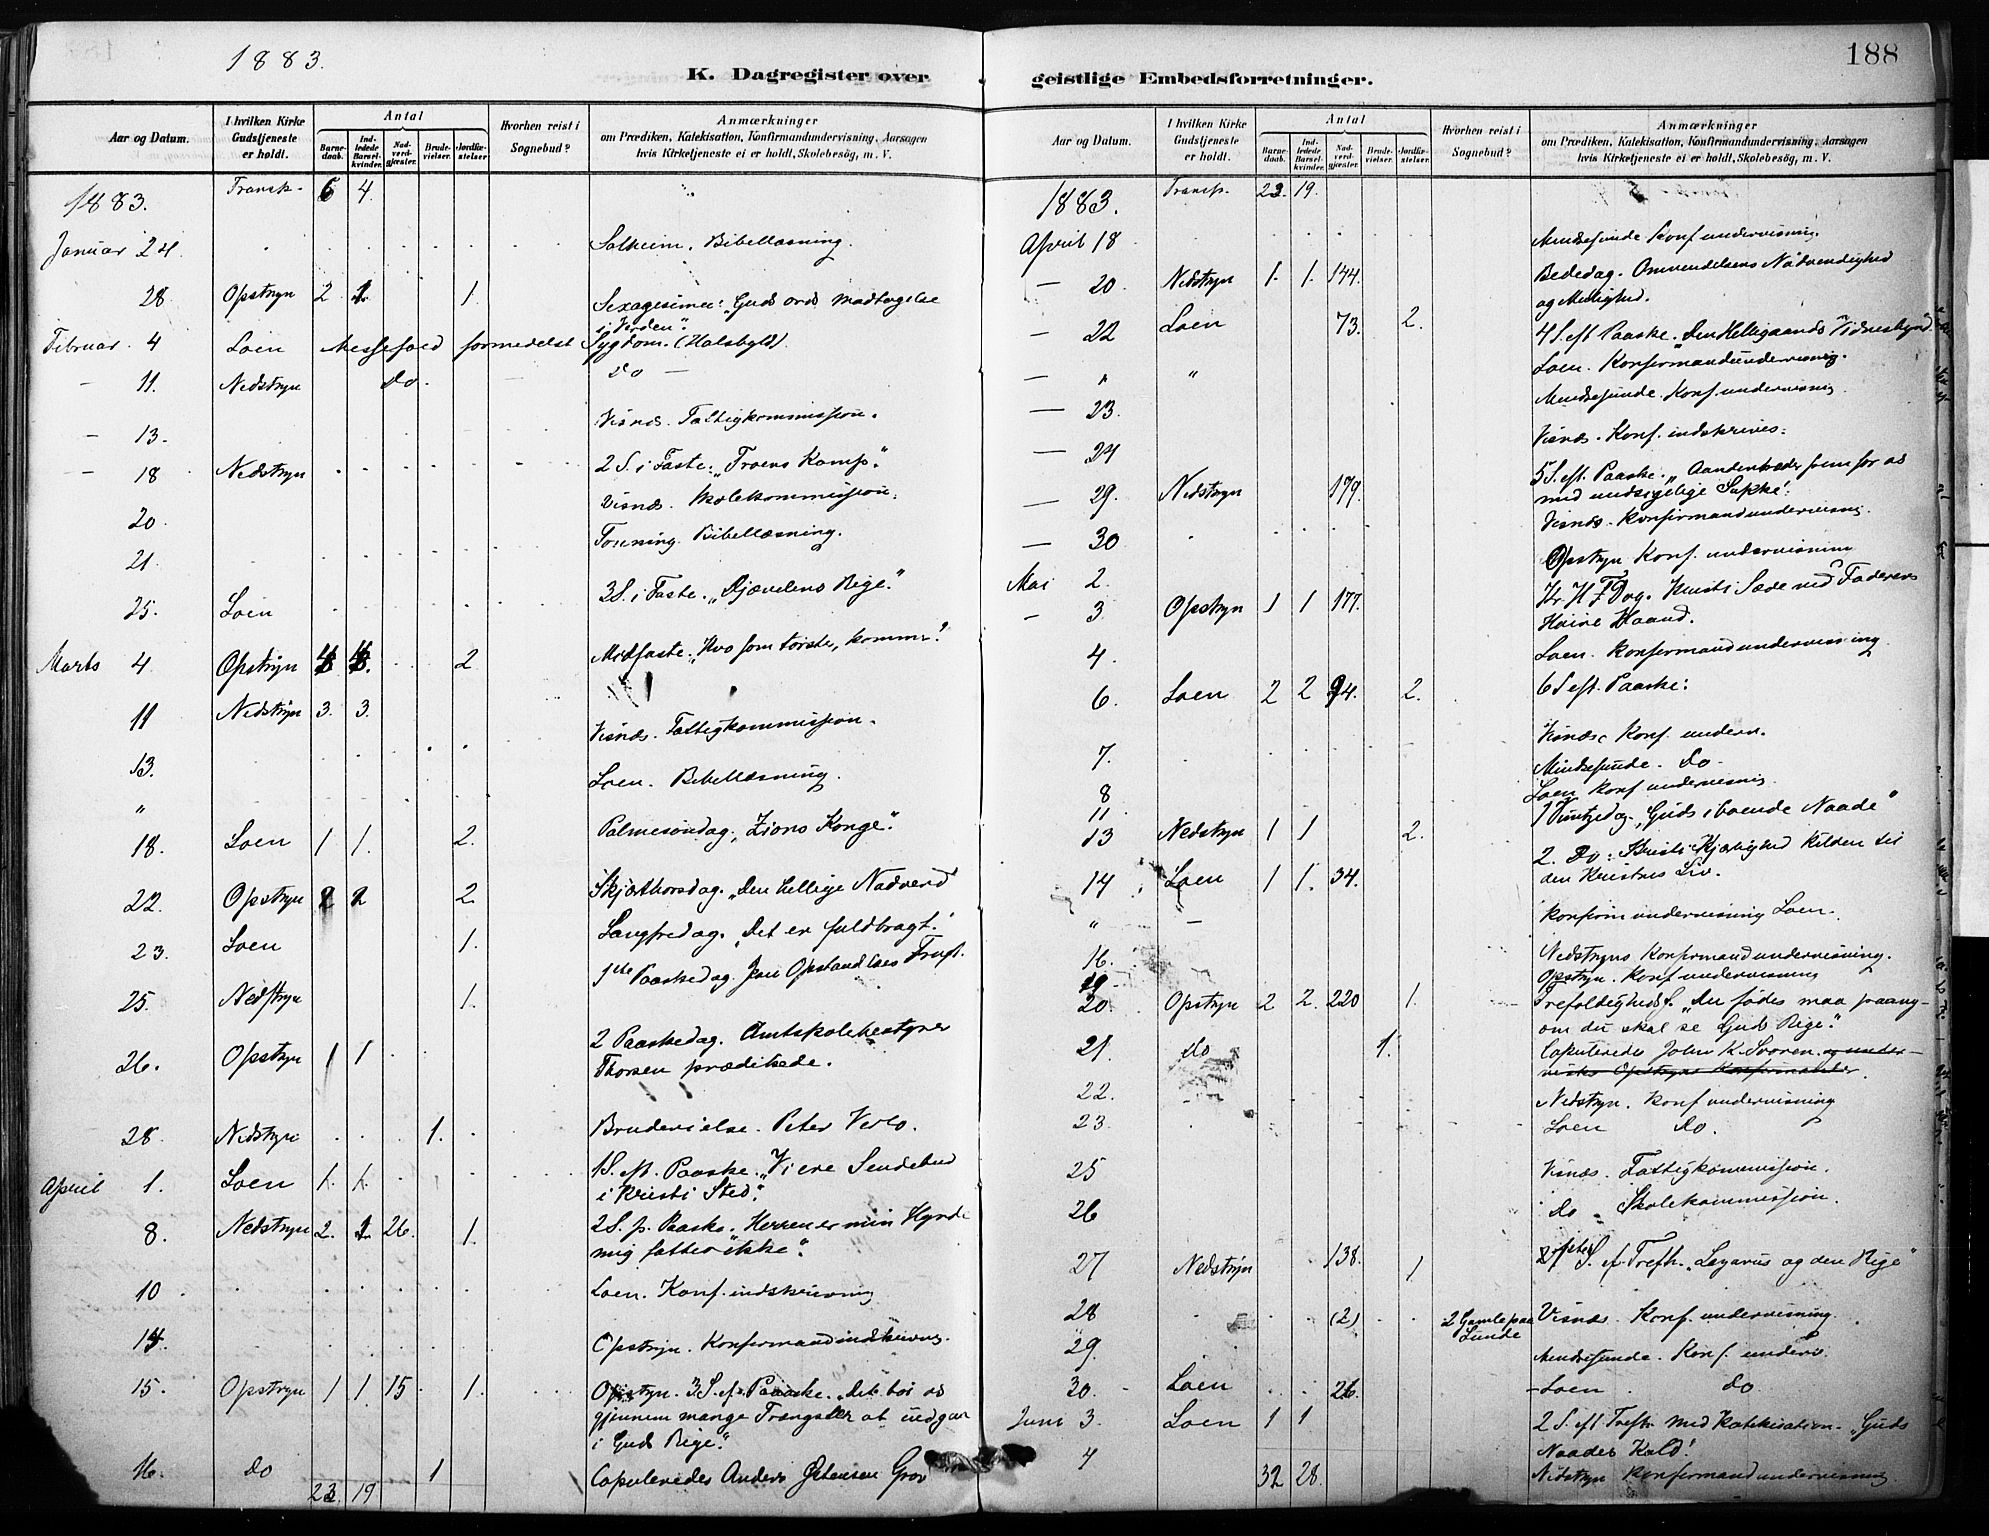 1883.
K. Dagregister over
Aar og Datum.
I hvilken Kirke Gudstjeneste er holdt.
Antal
Barne-daab.
Ind-ledede Barsel-kvinder.
Nad-verd-gjæster.
Brude-vielser.
Jordfæ-stelser.
Hvorhen reist i Sognebud?
Anmærkninger
om Prædiken, Katekisation, Konfirmandundervisning, Aarsagen
hvis Kirketjeneste ei er holdt, Skolebesøg, m. V.
1883. Transp. 6 4.
Januar 24. Solheim. Bibellæsning.
28 Opstryn 2. 1. 1. Sexagesima: "Guds ords Modtagelse
i Verden".
Februar. 4 Loen Messefald formedelst Sygdom. (Halsbyld)
— 11. Nedstryn Do. Do —
— 13. Visnæs. Fattigkommission.
— 18 Nedstryn 2 S. i Faste: "Troens Kamp."
20. Visnæs. Skolekommission.
21. Tonning. Bibellæsning.
25. Loen 3 S. i Faste. "Djævelens Rige."
Marts 4 Opstryn 4 4. 2. Midfaste. "Hvo som tørster, komme".
11 Nedstryn 3. 3.
13. Visnæs. Fattigkommission.
" Loen. Bibellæsning.
18. Loen 1 1. 2. Palmesøndag. "Zions Konge."
22. Opstryn 2 2 2. Skjærthorsdag. "Den hellige Nadverd
23. Loen 1. Langfredag. "Det er fuldbragt."
25. Nedstryn 1. 1ste Paaskedag. Jesu Opstandelses Frugt.
26. Opstryn 1 1. 2 Paaskedag. Amtskolebestyrer
Thorsen prædikede.
28 Nedstryn 1. Brudevielse. Peter Verlo.
April 1. Loen 1. 1. 1 S. eft. Paaske. "Vi ere Sendebud
i Kristi Sted."
8. Nedstryn 2. 1 26. 1. 2 S. p. Paaske. "Herren er min Hyrde
mig fattes ikke".
10 Loen. Konf. indskrivning
14. Opstryn. Konfirmandindskrivning.
15. Opstryn 1 1. 15 1. Opstryn. 3 S. ef. Paaske. "Det bør os
gjennem mange Trængsler at indgaa
i Guds Rige."
16. Do 1 Copuleredes Anders Østensen Grov
23. 19
geistlige Embedsforretninger.
188
Aar og Datum.
I hvilken Kirke Gudstjeneste er holdt.
Antal
Barne-daab.
Ind-ledede Barsel-kvinder.
Nad-verd-gjæster.
Brude-vielser.
Jordfæ-stelser.
Hvorhen reist i Sognebud?
Anmærkninger
om Prædiken, Katekisation, Konfirmandundervisning, Aarsagen
hvis Kirketjeneste ei er holdt, Skolebesøg, m. V.
1883. Transp. 23 19.
April 18 Mindresunde Konf undervisning.
— 20. Nedstryn 1. 1. 144. Bededag. Omvendelsens Nødvendighed
og Mulighed.
— 22 Loen 73. 2. 4 S. eft Paaske. "Den Helligaands Vidnesbyrd."
— " " Loen. Konfirmandundervisnig.
— 23. Mindresunde. Konf undervisning
— 24 Visnæs. Konf. indskrives.
— 29. Nedstryn 179. 5 S. eft. Paaske. "Aanden træder frem for os
med uudsigelige Sukke".
— 30 Visnæs. Konfirmandundervisng.
Mai 2. Opstryn Konf. undervisning
— 3 Opstryn 1 1 177. Kr. H F Dag. Kristi Sæde ved Faderens
Høire Haand.
4. Loen. Konfirmandundervisning
6. Loen 2 2 94. 2. 6 S eft. Paaske:
7. Visnæs. Konf. underv.
8 Mindresunde. Do.
11. Loen Konf undervisnig
13 Nedstryn 1 1 2. 1 Pintsedag. "Guds iboende Naade"
14 Loen 1 1. 34. 2. Do: Kristi Kjærlighed Kilden til
den Kristnes Liv.
" — Konfirm undervisning Loen.
16. Nedstryns Konfirmandundervisning.
19 Opstryn. Konf undervisning
20. Opstryn 2 2. 220 1. Trefoldigheds S. "Der fødes maa paany-
om du skal se Guds Rige."
21. Do 1. Copuleredes John K. Svoren. og under-
vistes Opstryns Konfirmander.
22. Nedstryn. Konf undervisning
23. Loen Do.
25 Visnæs. Fattigkommission.
26 Do - Skolekommission.
27 Nedstryn 138. 1 S. ef. Trefh. "Lazarus og den Rige"
28 (2) 2 Gamle paa Sunde Visnæs. Konf. undervisning.
29. Mindresunde. Konf. underv.
30. Loen 26. Loen. Do
Juni 3. Loen 1 1 2 S. eft Trefh. Med Katekisation. "Guds
Naades Kald".
4 Nedstryn Konfirmandundervisning.
32 28.